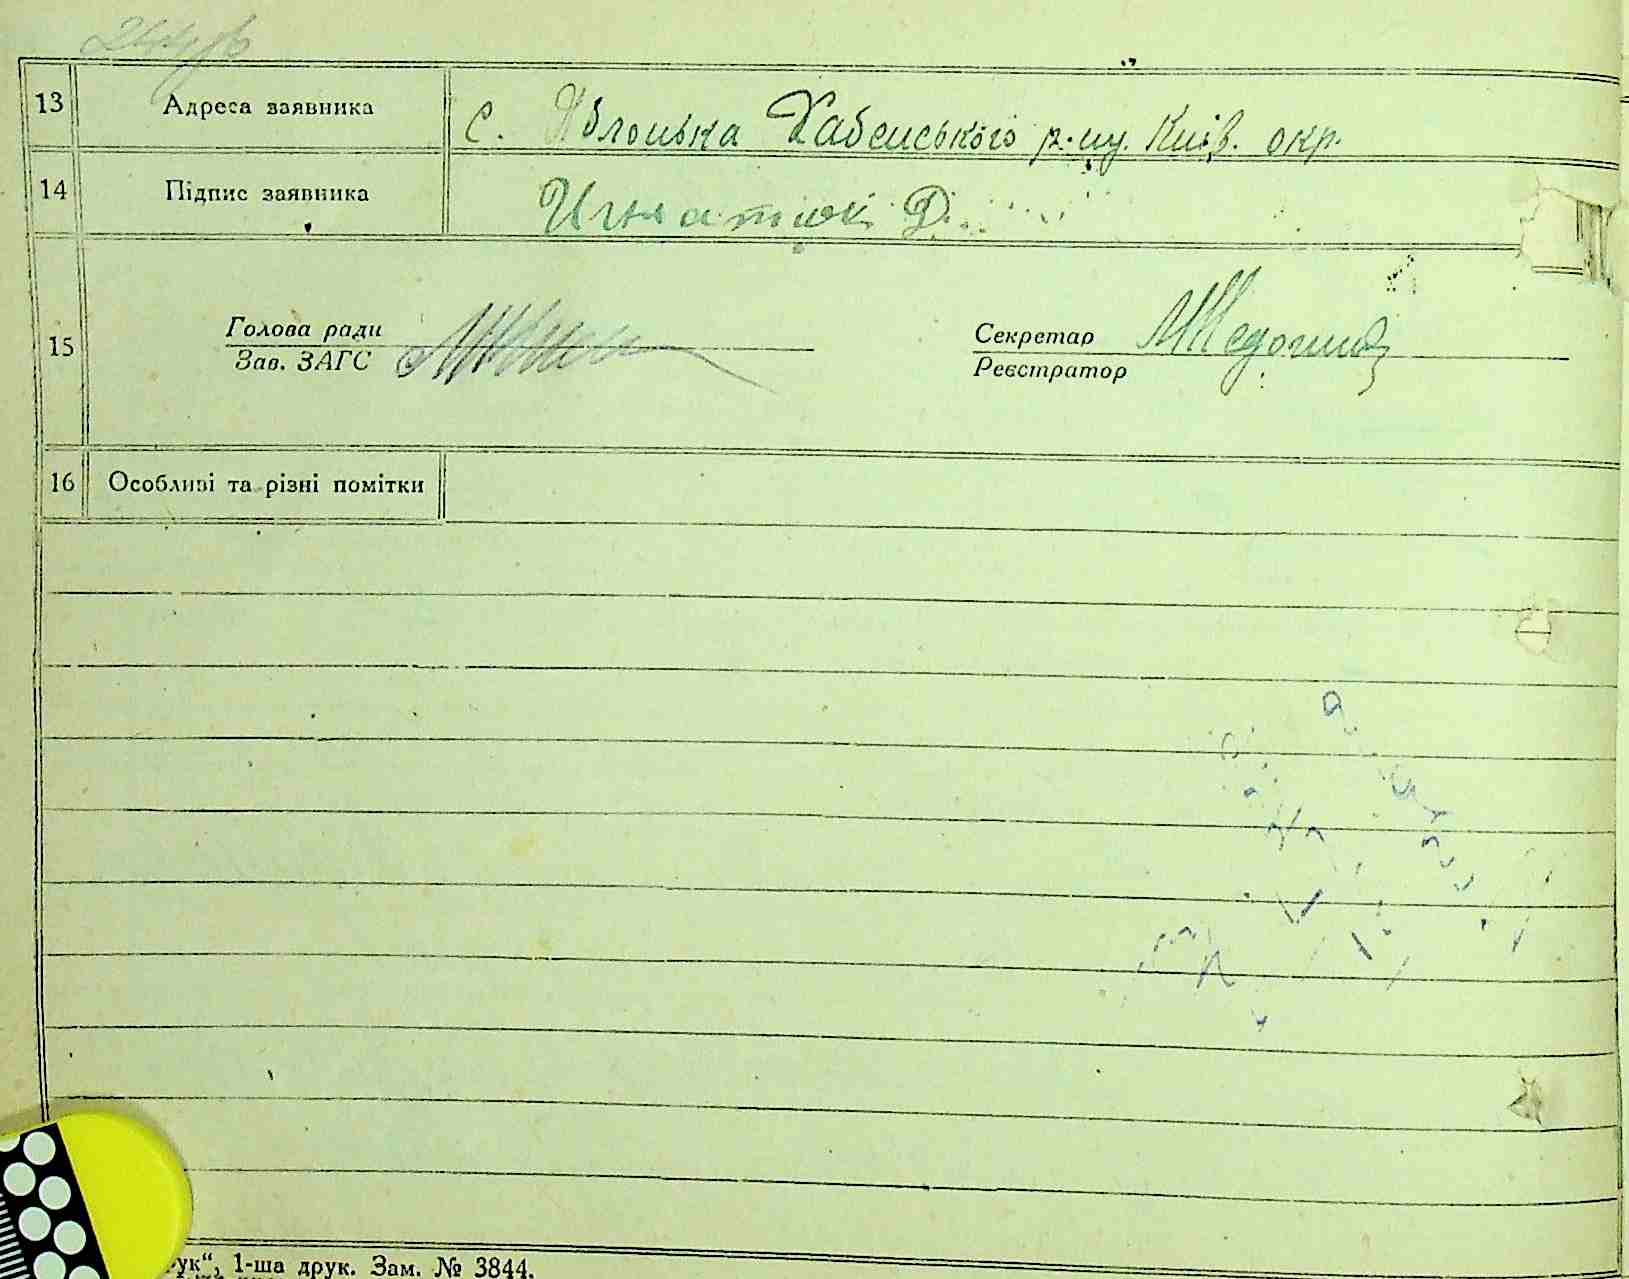 13 Адреса заявника с. Яблонька Хабенського р-ну. Київ. окр.
14 Підпис заявника Игнатюк Д.
15
Голова ради
Зав. ЗАГС
Секретар
Реєстратор
16 Особливі та різні помітки
рук“, 1-ша друк. Зам. № 3844.